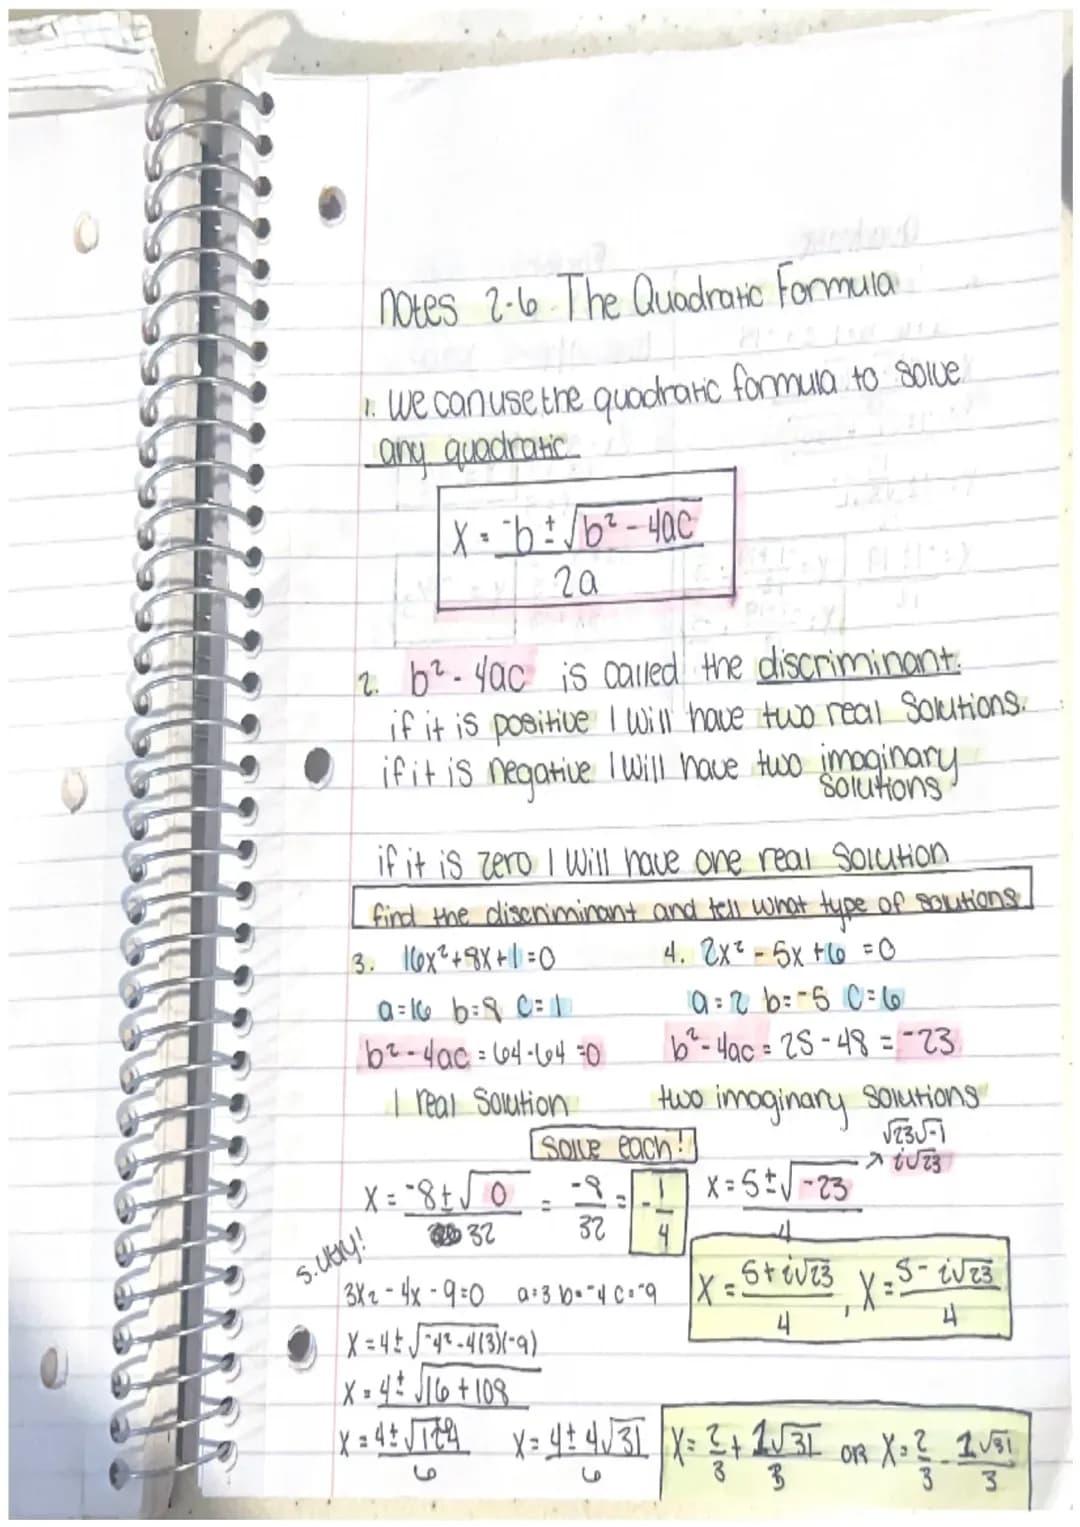 notes 2-6 The Quadratic Formula
1. We can use the quadratic formula to solve
any quadratic
x = ⁻b ± √b² - 4ac
2a
2. b² - 4ac is called the discriminant.
if it is positive I will have two real solutions.
if it is negative I will have two imaginary
solutions
if it is zero I will have one real solution
find the discriminant and tell what type of solutions
3. 16x² + 8x + 1 = 0
a = 16 b = 8 c = 1
b² - 4ac = 64 - 64 = 0
1 real solution
4. 2x² - 5x + 6 = 0
a = 2 b = ⁻5 c = 6
b² - 4ac = 25 - 48 = ⁻23
two imaginary solutions
Solve each!
x = ⁻8 ± √0 = -8 = - 1
32 32 4
√23√-1
→ i√23
x = 5 ± √-23
4
x = 5 + i√23 , x = 5 - i√23
4 4
5. try!
3x2 - 4x - 9 = 0 a = 3 b = ⁻4 c = ⁻9
x = 4 ± √⁻4² - 4(3)(-9)
x = 4 ± √16 + 108
x = 4 ± √124 x = 4 ± 4√31 x = 2 + 1√31 OR x = 2 - 1√31
6 6 3 3 3 3